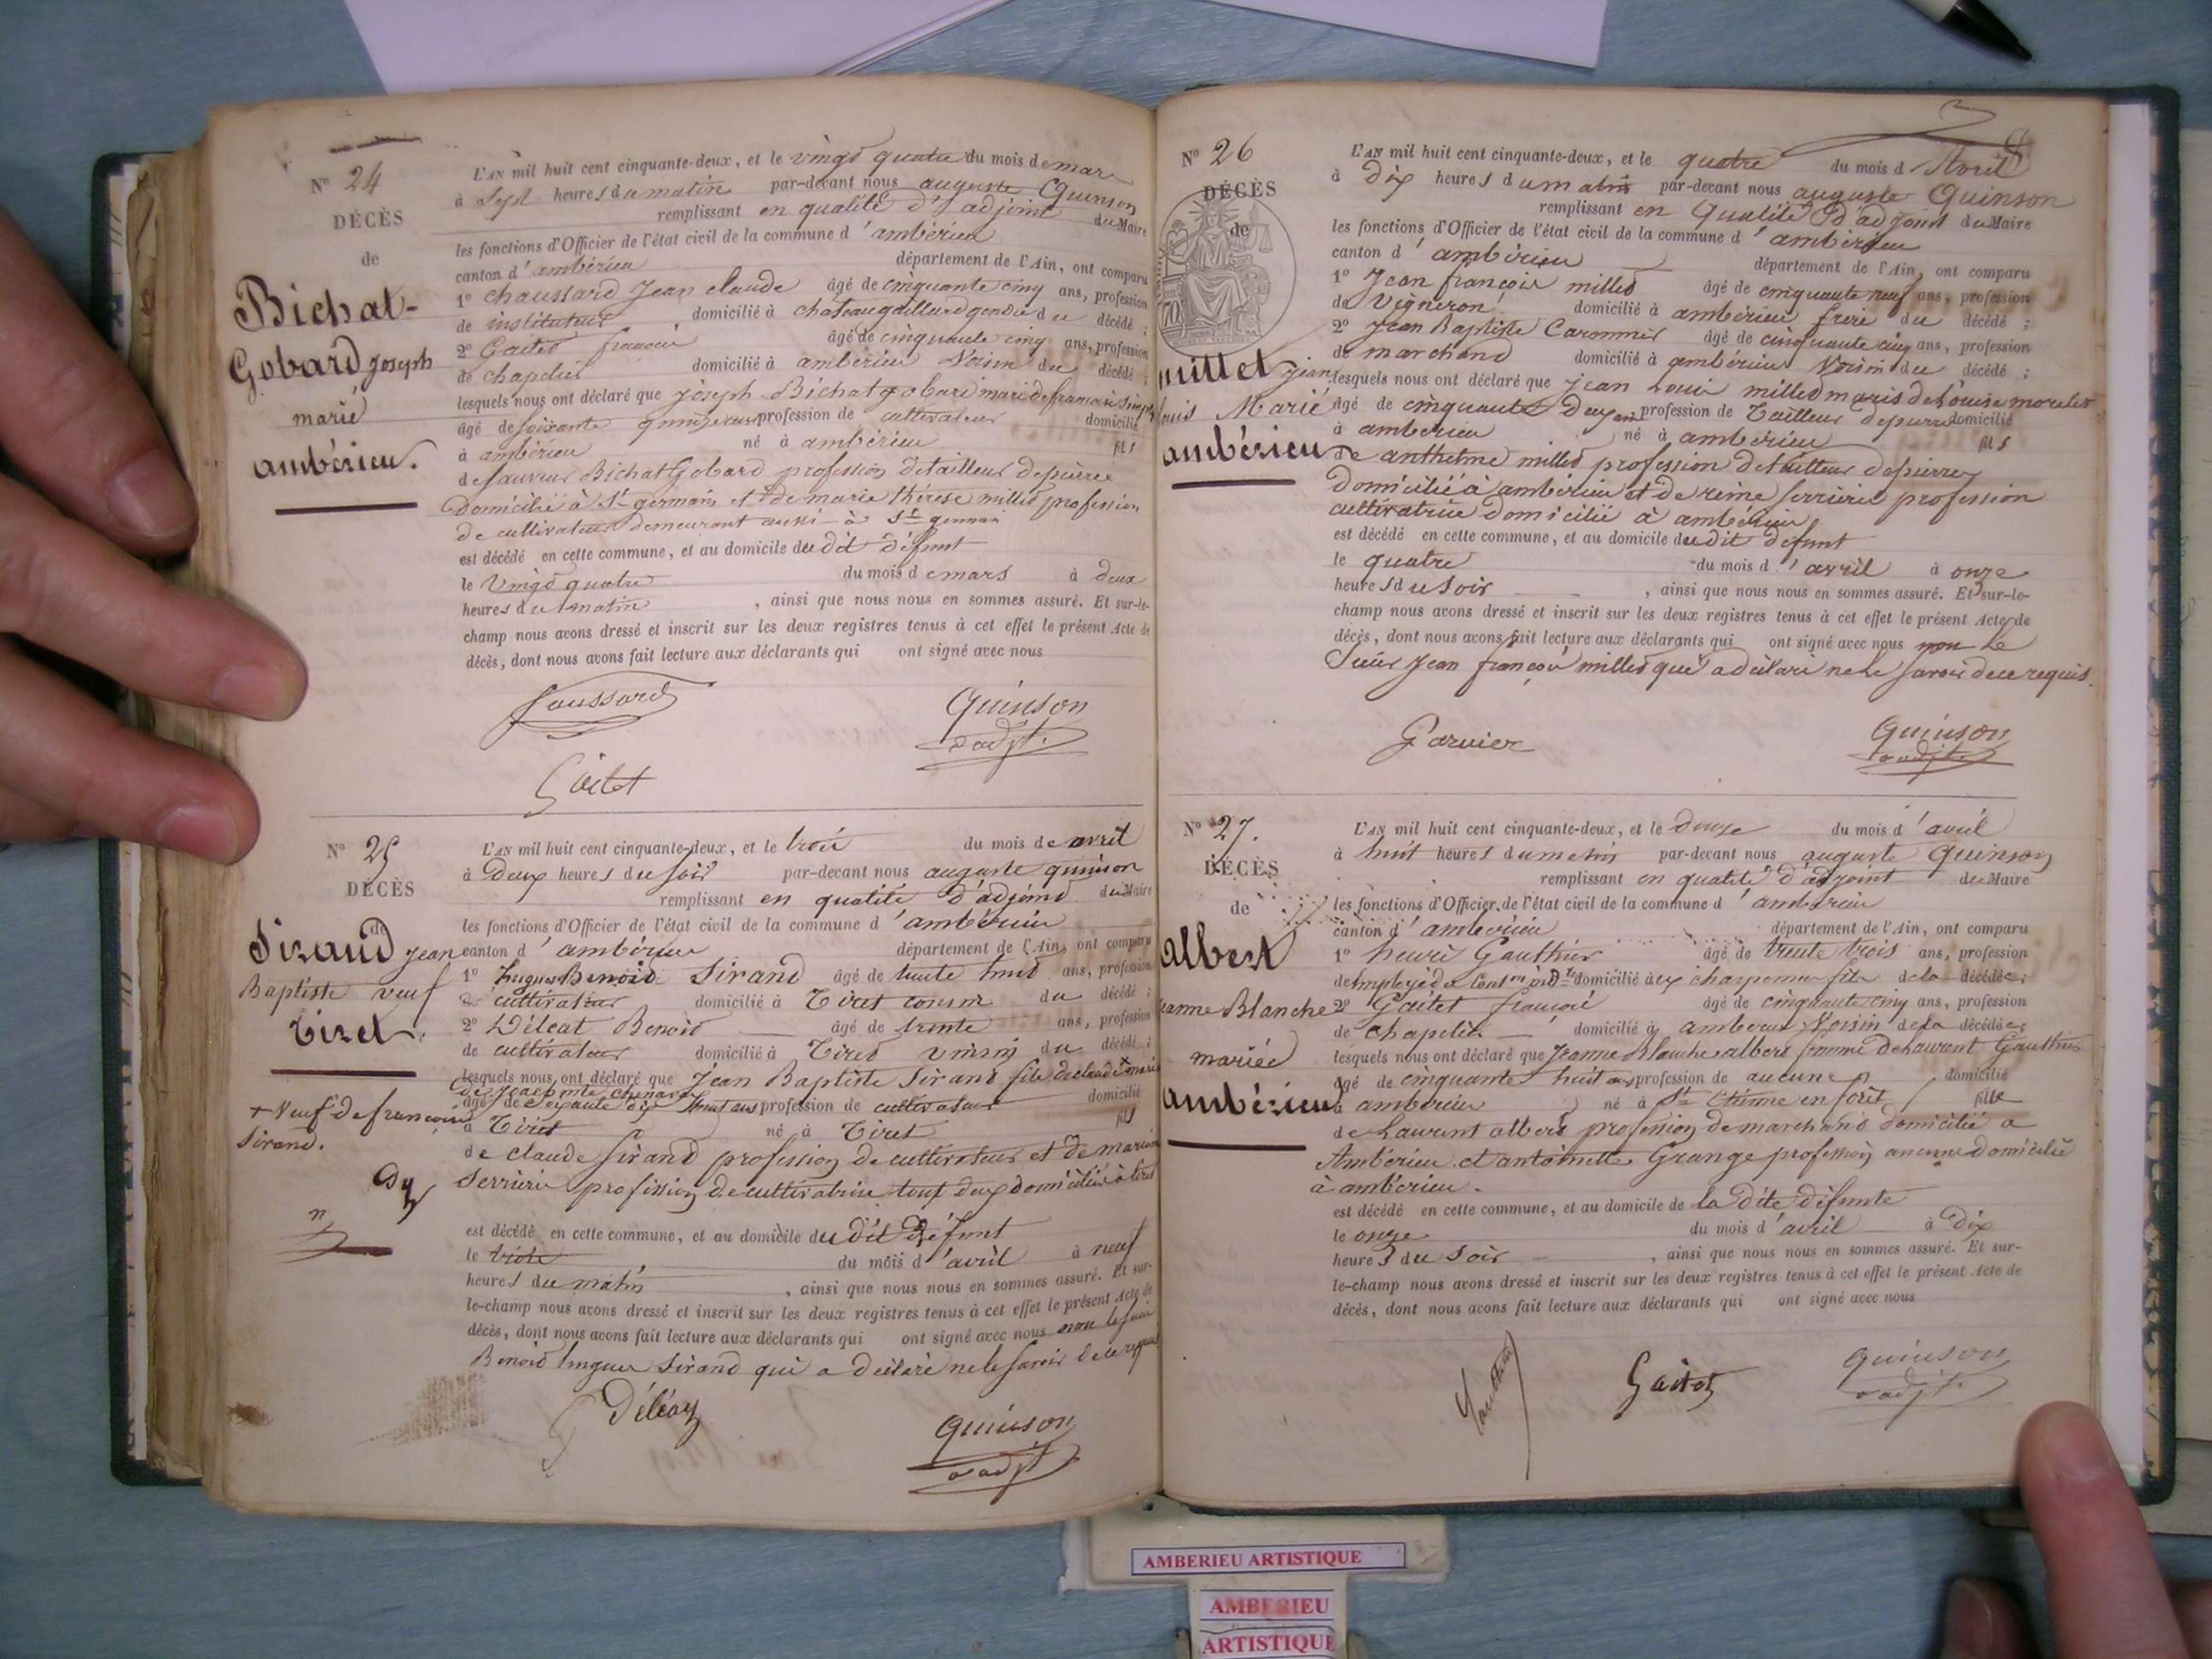 N° 24
DÉCÈS
de
Bichat-
Gobard joseph
marié
ambérieu.
L'AN mil huit cent cinquante-deux, et le vingt quatre du mois de mars
à sept heures du matin par-devant nous auguste Quinson
remplissant en qualité d'adjoint du Maire
les fonctions d'Officier de l'état civil de la commune d'ambérieu
canton d'ambérieu département de l'Ain, ont comparu
1° chaussard Jean claude âgé de cinquante cinq ans, profession
de instituteur domicilié à chateaugaillard gendre du décédé ;
2° Gaitet françois âgé de cinquante cinq ans, profession
de chapelier domicilié à ambérieu Voisin du décédé ;
lesquels nous ont déclaré que joseph Bichat gobard mari de françoise
âgé de soixante quinze ans profession de cultivateur domicilié
à ambérieu né à ambérieu fils
de sauveur Bichat Gobard profession de tailleur de pierre
Domicilié à St germain et de marie thérese millet profession
de cultivateur demeurant aussi à St germain
est décédé en cette commune, et au domicile du dit défunt
le Vingt quatre du mois de mars à deux
heures du matin , ainsi que nous nous en sommes assuré. Et sur-le-
champ nous avons dressé et inscrit sur les deux registres tenus à cet effet le présent Acte de
décès, dont nous avons fait lecture aux déclarants qui ont signé avec nous
Quinson
adjt.
Gaitet
N° 25
DÉCÈS
de
Sirand jean
Baptiste veuf
tiret.
+ Veuf de françoise
Sirand.
L'AN mil huit cent cinquante-deux, et le trois du mois de avril
à Deux heures du soir par-devant nous auguste quinson
remplissant en qualité d'adjoint du Maire
les fonctions d'Officier de l'état civil de la commune d'ambérieu
canton d'ambérieu département de l'Ain, ont comparu
1° hugues Benoid Sirand âgé de trente huit ans, profession
de cultivateur domicilié à Tiret cousin du décédé ;
2° Déléat Benoid âgé de trente ans, profession
de cultivateur domicilié à Tiret voisin du décédé ;
lesquels nous ont déclaré que Jean Baptiste Sirand
âgé de soixante dix huit ans profession de cultivateur domicilié
à Tiret né à Tiret fils
de claude Sirand profession de cultivateur et de marie
Serriere profission de cultivatrice tous deux domiciliés à tiret
est décédé en cette commune, et au domicile du dit Défunt
le trois du mois d'avril à neuf
heures du matin , ainsi que nous nous en sommes assuré. Et sur-
le-champ nous avons dressé et inscrit sur les deux registres tenus à cet effet le présent Acte de
décès, dont nous avons fait lecture aux déclarants qui ont signé avec nous non le sieur
Benoid hugues Sirand qui a déclaré ne le savoir de ce requis
Déléat
quinson
adjt
N° 26
DÉCÈS
de
millet jean
louis Marié
ambérieu
L'AN mil huit cent cinquante-deux, et le quatre du mois d'Avril
à Dix heures du matin par-devant nous auguste Quinson
remplissant en Qualité d'adjoint du Maire
les fonctions d'Officier de l'état civil de la commune d'ambérieu
canton d'ambérieu département de l'Ain, ont comparu
1° Jean françois millet âgé de cinquante neuf ans, profession
de Vigneron domicilié à ambérieu frère du décédé ;
2° Jean Baptiste âgé de cinquante cinq ans, profession
de marchand domicilié à ambérieu Voisin du décédé ;
lesquels nous ont déclaré que jean Louis millet maris de Louise
âgé de cinquante Deux ans profession de Tailleur de pierre domicilié
à ambérieu né à ambérieu fils
de anthelme millet profession de tailleur de pierre
Domicilié à ambérieu et de reine serriere profession
cultivatrice domicilié à ambérieu
est décédé en cette commune, et au domicile du dit défunt
le quatre du mois d'avril à onze
heures du soir , ainsi que nous nous en sommes assuré. Et sur-le-
champ nous avons dressé et inscrit sur les deux registres tenus à cet effet le présent Acte de
décès, dont nous avons fait lecture aux déclarants qui ont signé avec nous non le
Sieur Jean françois millet qui a déclaré ne le savoir de ce requis.
quinson
adjt.
N° 27.
DÉCÈS
de
Albert
jeanne Blanche
mariée
Ambérieu
L'AN mil huit cent cinquante-deux, et le douze du mois d'avril
à huit heures du matin par-devant nous auguste Quinson
remplissant en qualité d'adjoint du Maire
les fonctions d'Officier de l'état civil de la commune d'ambérieu
canton d'ambérieu département de l'Ain, ont comparu
1° henri Gauthier âgé de trente trois ans, profession
domicilié à fils de la décédée ;
2° Gaitet françois âgé de cinquante cinq ans, profession
de chapelier domicilié à ambérieu Voisin de la décédée
lesquels nous ont déclaré que Jeanne Blanche albert femme de Laurent Gauthier
âgé de cinquante huit ans profession de aucune domicilié
à ambérieu né à St Etienne en forêt fille
de Laurent albert profession de marchand domicilié a
Ambérieu et antoinette Grange profession aucune domicilié
à ambérieu.
est décédé en cette commune, et au domicile de la dite défunte
le onze du mois d'avril à Dix
heures du Soir , ainsi que nous nous en sommes assuré. Et sur-
le-champ nous avons dressé et inscrit sur les deux registres tenus à cet effet le présent Acte de
décès, dont nous avons fait lecture aux déclarants qui ont signé avec nous
Gauthier
Gaitet
quinson
adjt.
AMBERIEU ARTISTIQUE
AMBERIEU
ARTISTIQUE